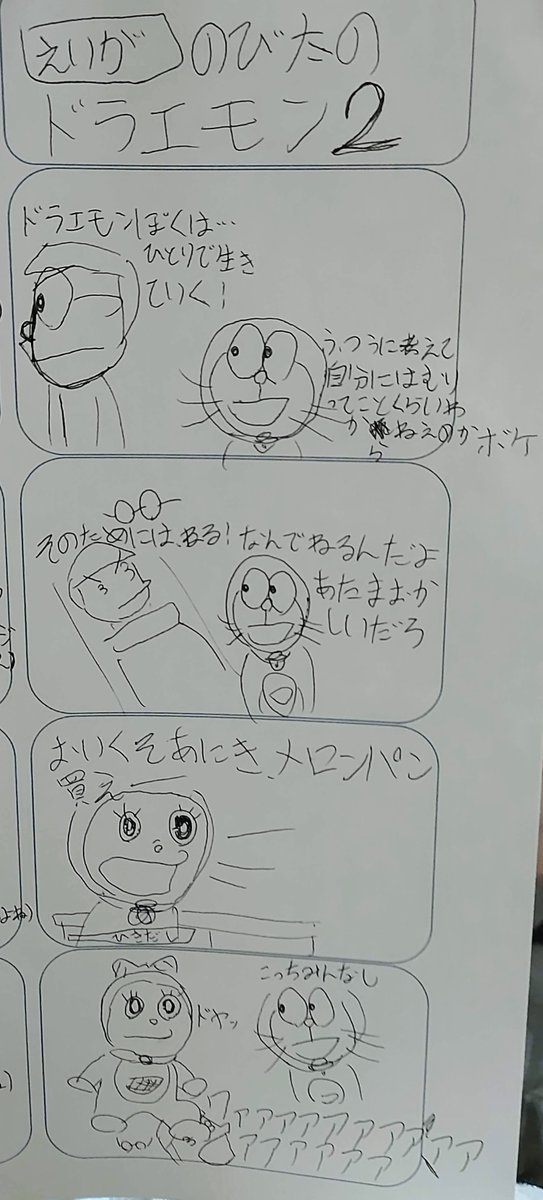 えいが のびたの
ドラエモン2
ドラエモンぼくは…
ひとりで生き
ていく!
ふつうに考えて
自分にはむり
ってことくらいわ
からねえのかボケ
そのためには、ねる!
なんでねるんだよ
あたまおか
しいだろ
おいくそあにき、メロンパン
買え
ひきだし
ドヤッ
こっちみんなし
ファァァァァァァァァ
ァァァァァァァ
よね)